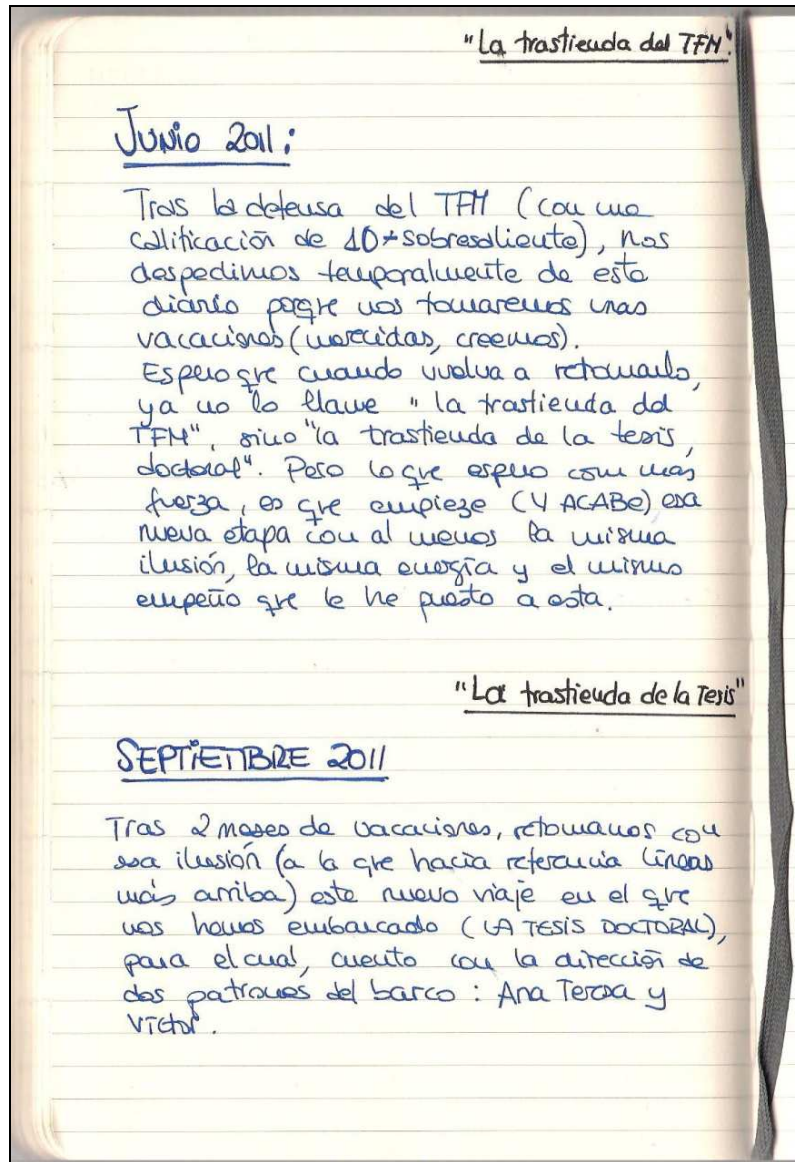 "La trastienda del TFM".
JUNIO 2011:
Tras la defensa del TFM (con una
calificación de 10+sobresaliente), nos
despedimos temporalmente de este
diario porque nos tomaremos unas
vacaciones (merecidas, creemos).
Espero que cuando vuelva a retomarlo,
ya no lo llame "la trastienda del
TFM", sino "la trastienda de la tesis
doctoral". Pero lo que espero con más
fuerza, es que empieze (Y ACABE) esa
nueva etapa con al menos la misma
ilusión, la misma energía y el mismo
empeño que le he puesto a esta.
"La trastienda de la Tesis"
SEPTIEMBRE 2011
Tras 2 meses de vacaciones, retomamos con
esa ilusión (a la que hacía referencia líneas
más arriba) este nuevo viaje en el que
nos hemos embarcado (LA TESIS DOCTORAL),
para el cual, cuento con la dirección de
dos patrones del barco: Ana Teresa y
Víctor.